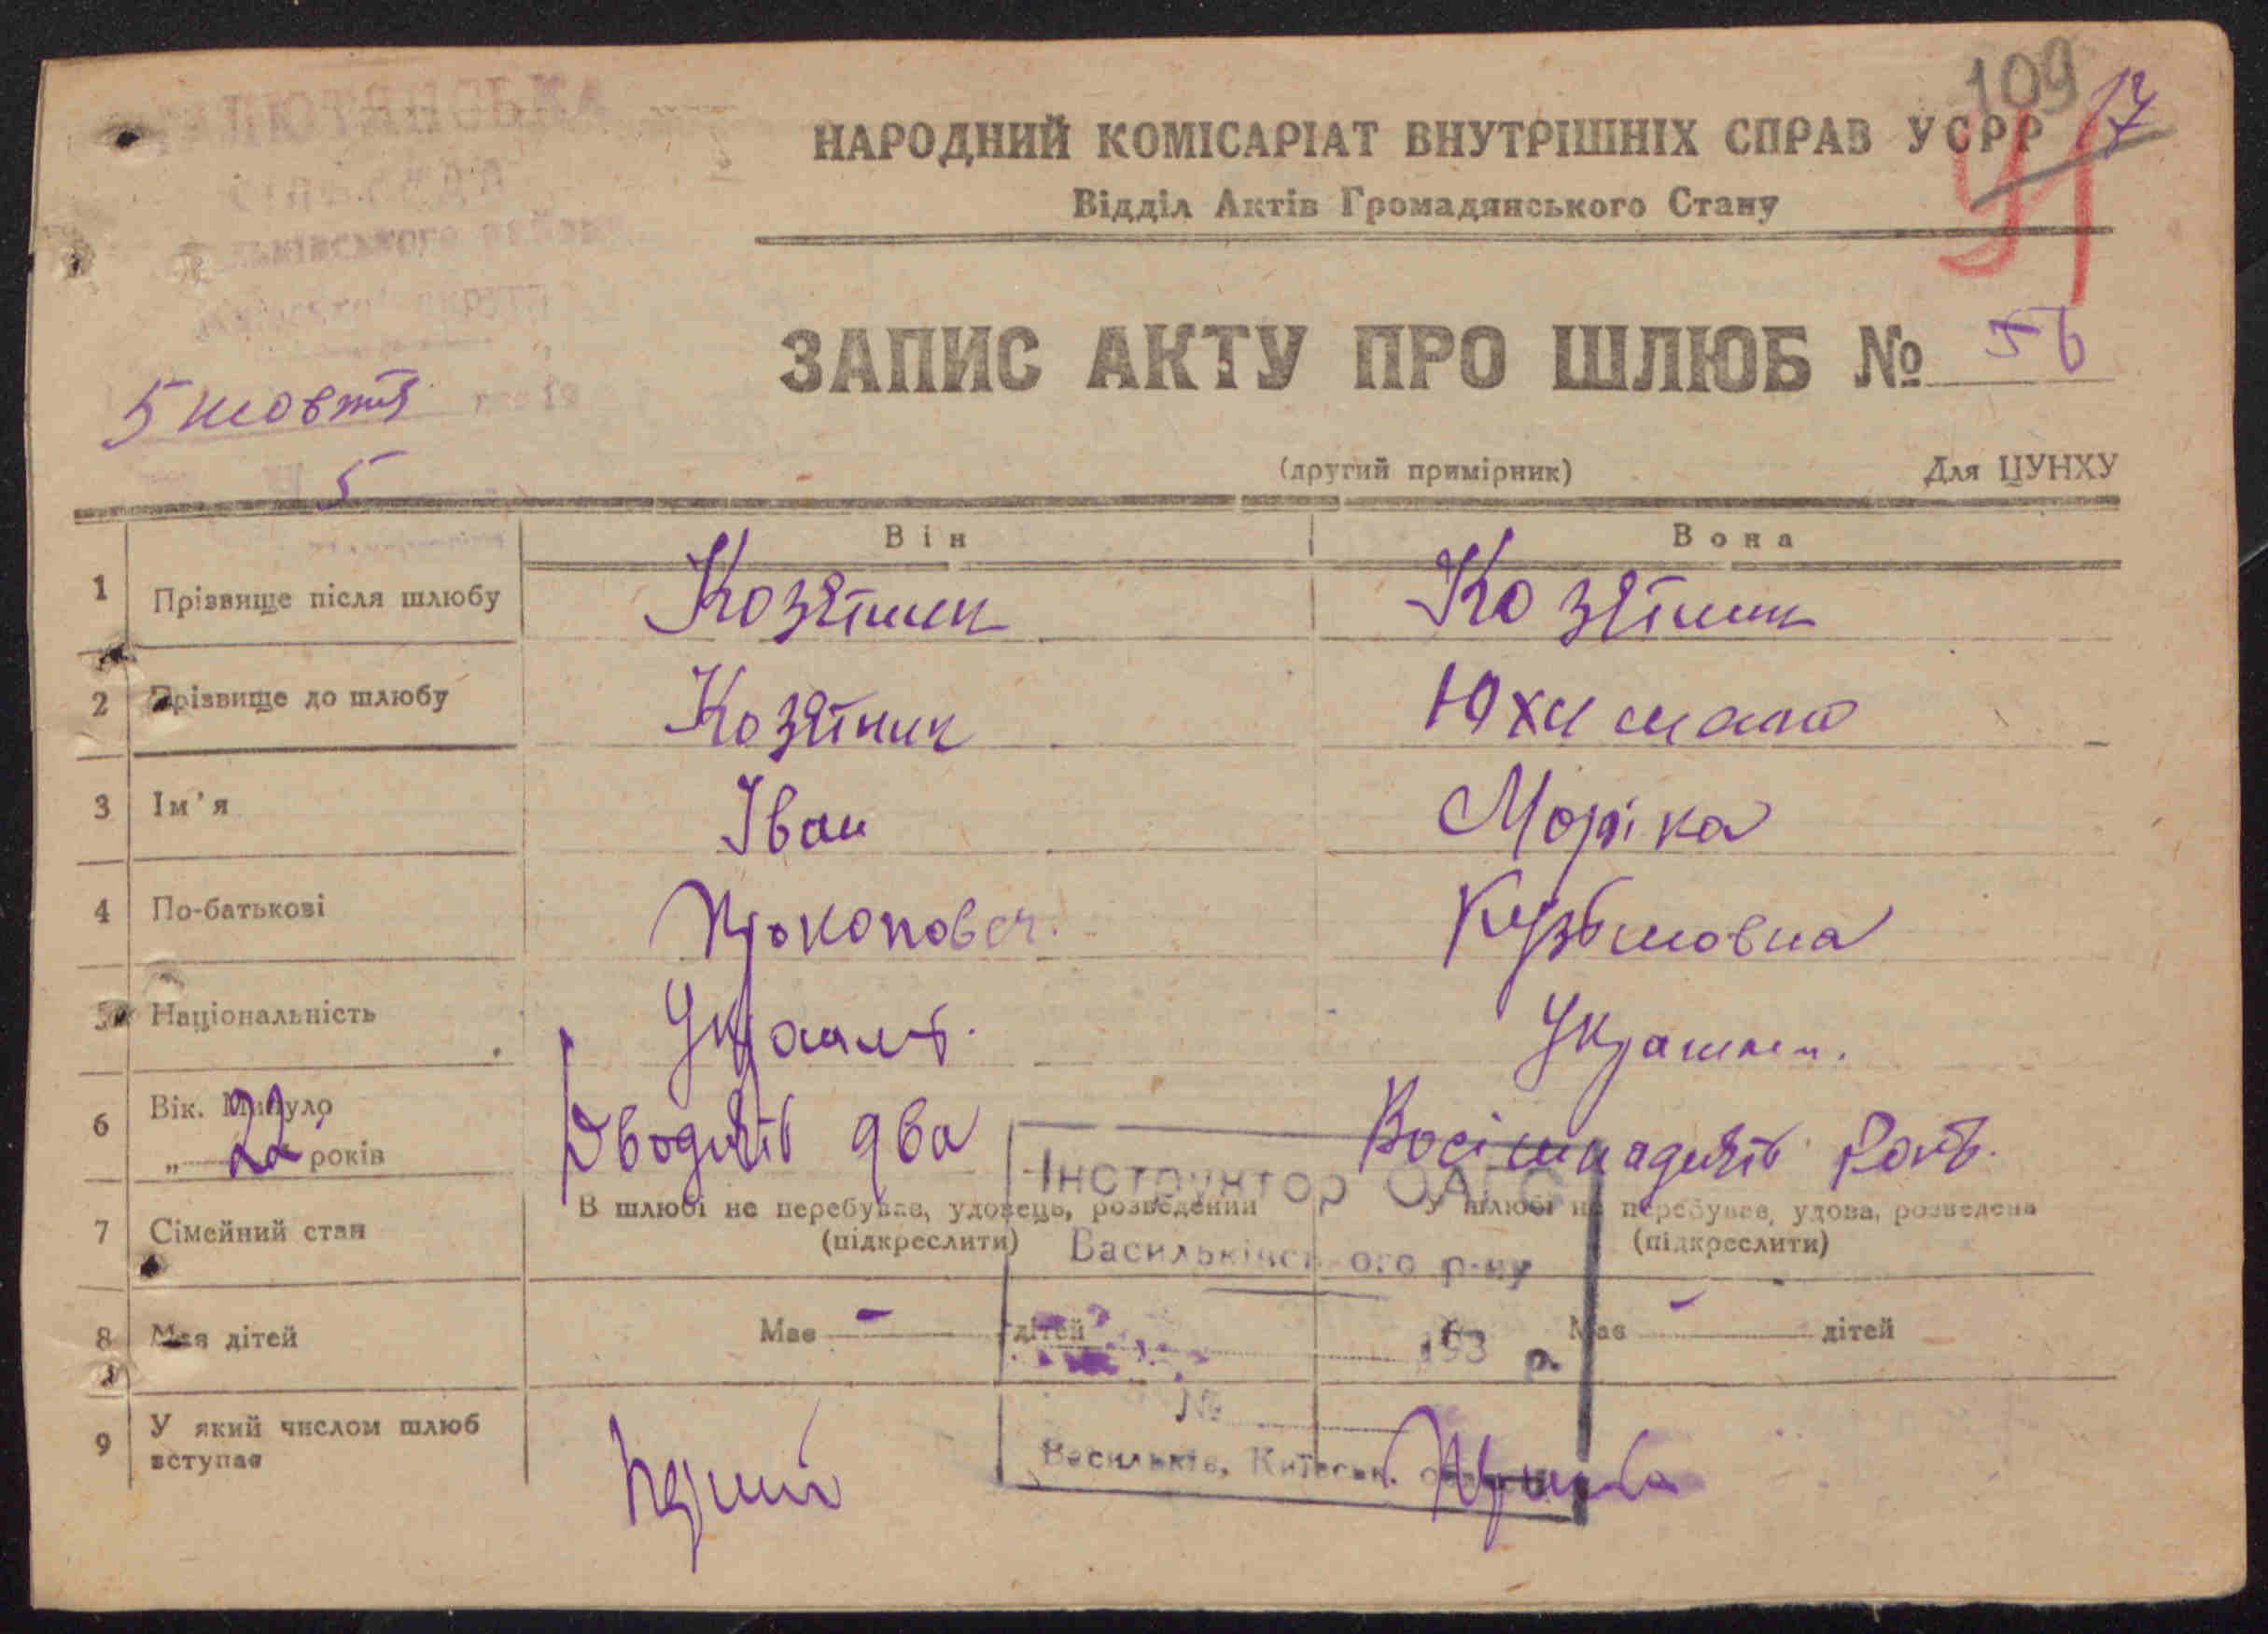 109
17
НАРОДНИЙ КОМІСАРІАТ ВНУТРІШНІХ СПРАВ УСРР
91
Відділ Актів Громадянського Стану
ЗАПИС АКТУ ПРО ШЛЮБ № 56
5 жовтня
5
(другий примірник) Для ЦУНХУ
Він Вона
1 Прізвище після шлюбу Козятник Козятник
2 Прізвище до шлюбу Козятник
3 Ім'я Іван Марiка
4 По-батькові Прокопович Кузьмовна
5 Національність
6 Вік. Минуло 22 років Двадцять два Восімнадцять
7 Сімейний стан В шлюбі не перебував, удовець, розведений (підкреслити) У шлюбі не перебував, удова, розведена (підкреслити)
Інструктор ОАГС
Васильківського р-ну
8 Має дітей Має — дітей Має — дітей
193 р.
№
9 У який числом шлюб вступає
Васильків, Київськ.